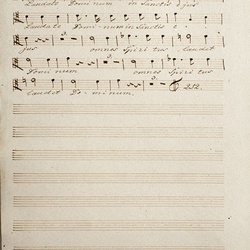 Laudate Dominum in Sanctis ejus
Laudate Dominum in Sanctis e-
jus omnes Spiritus Laudet
Dominum omnes Spiritus
Laudet Dominum.
252.